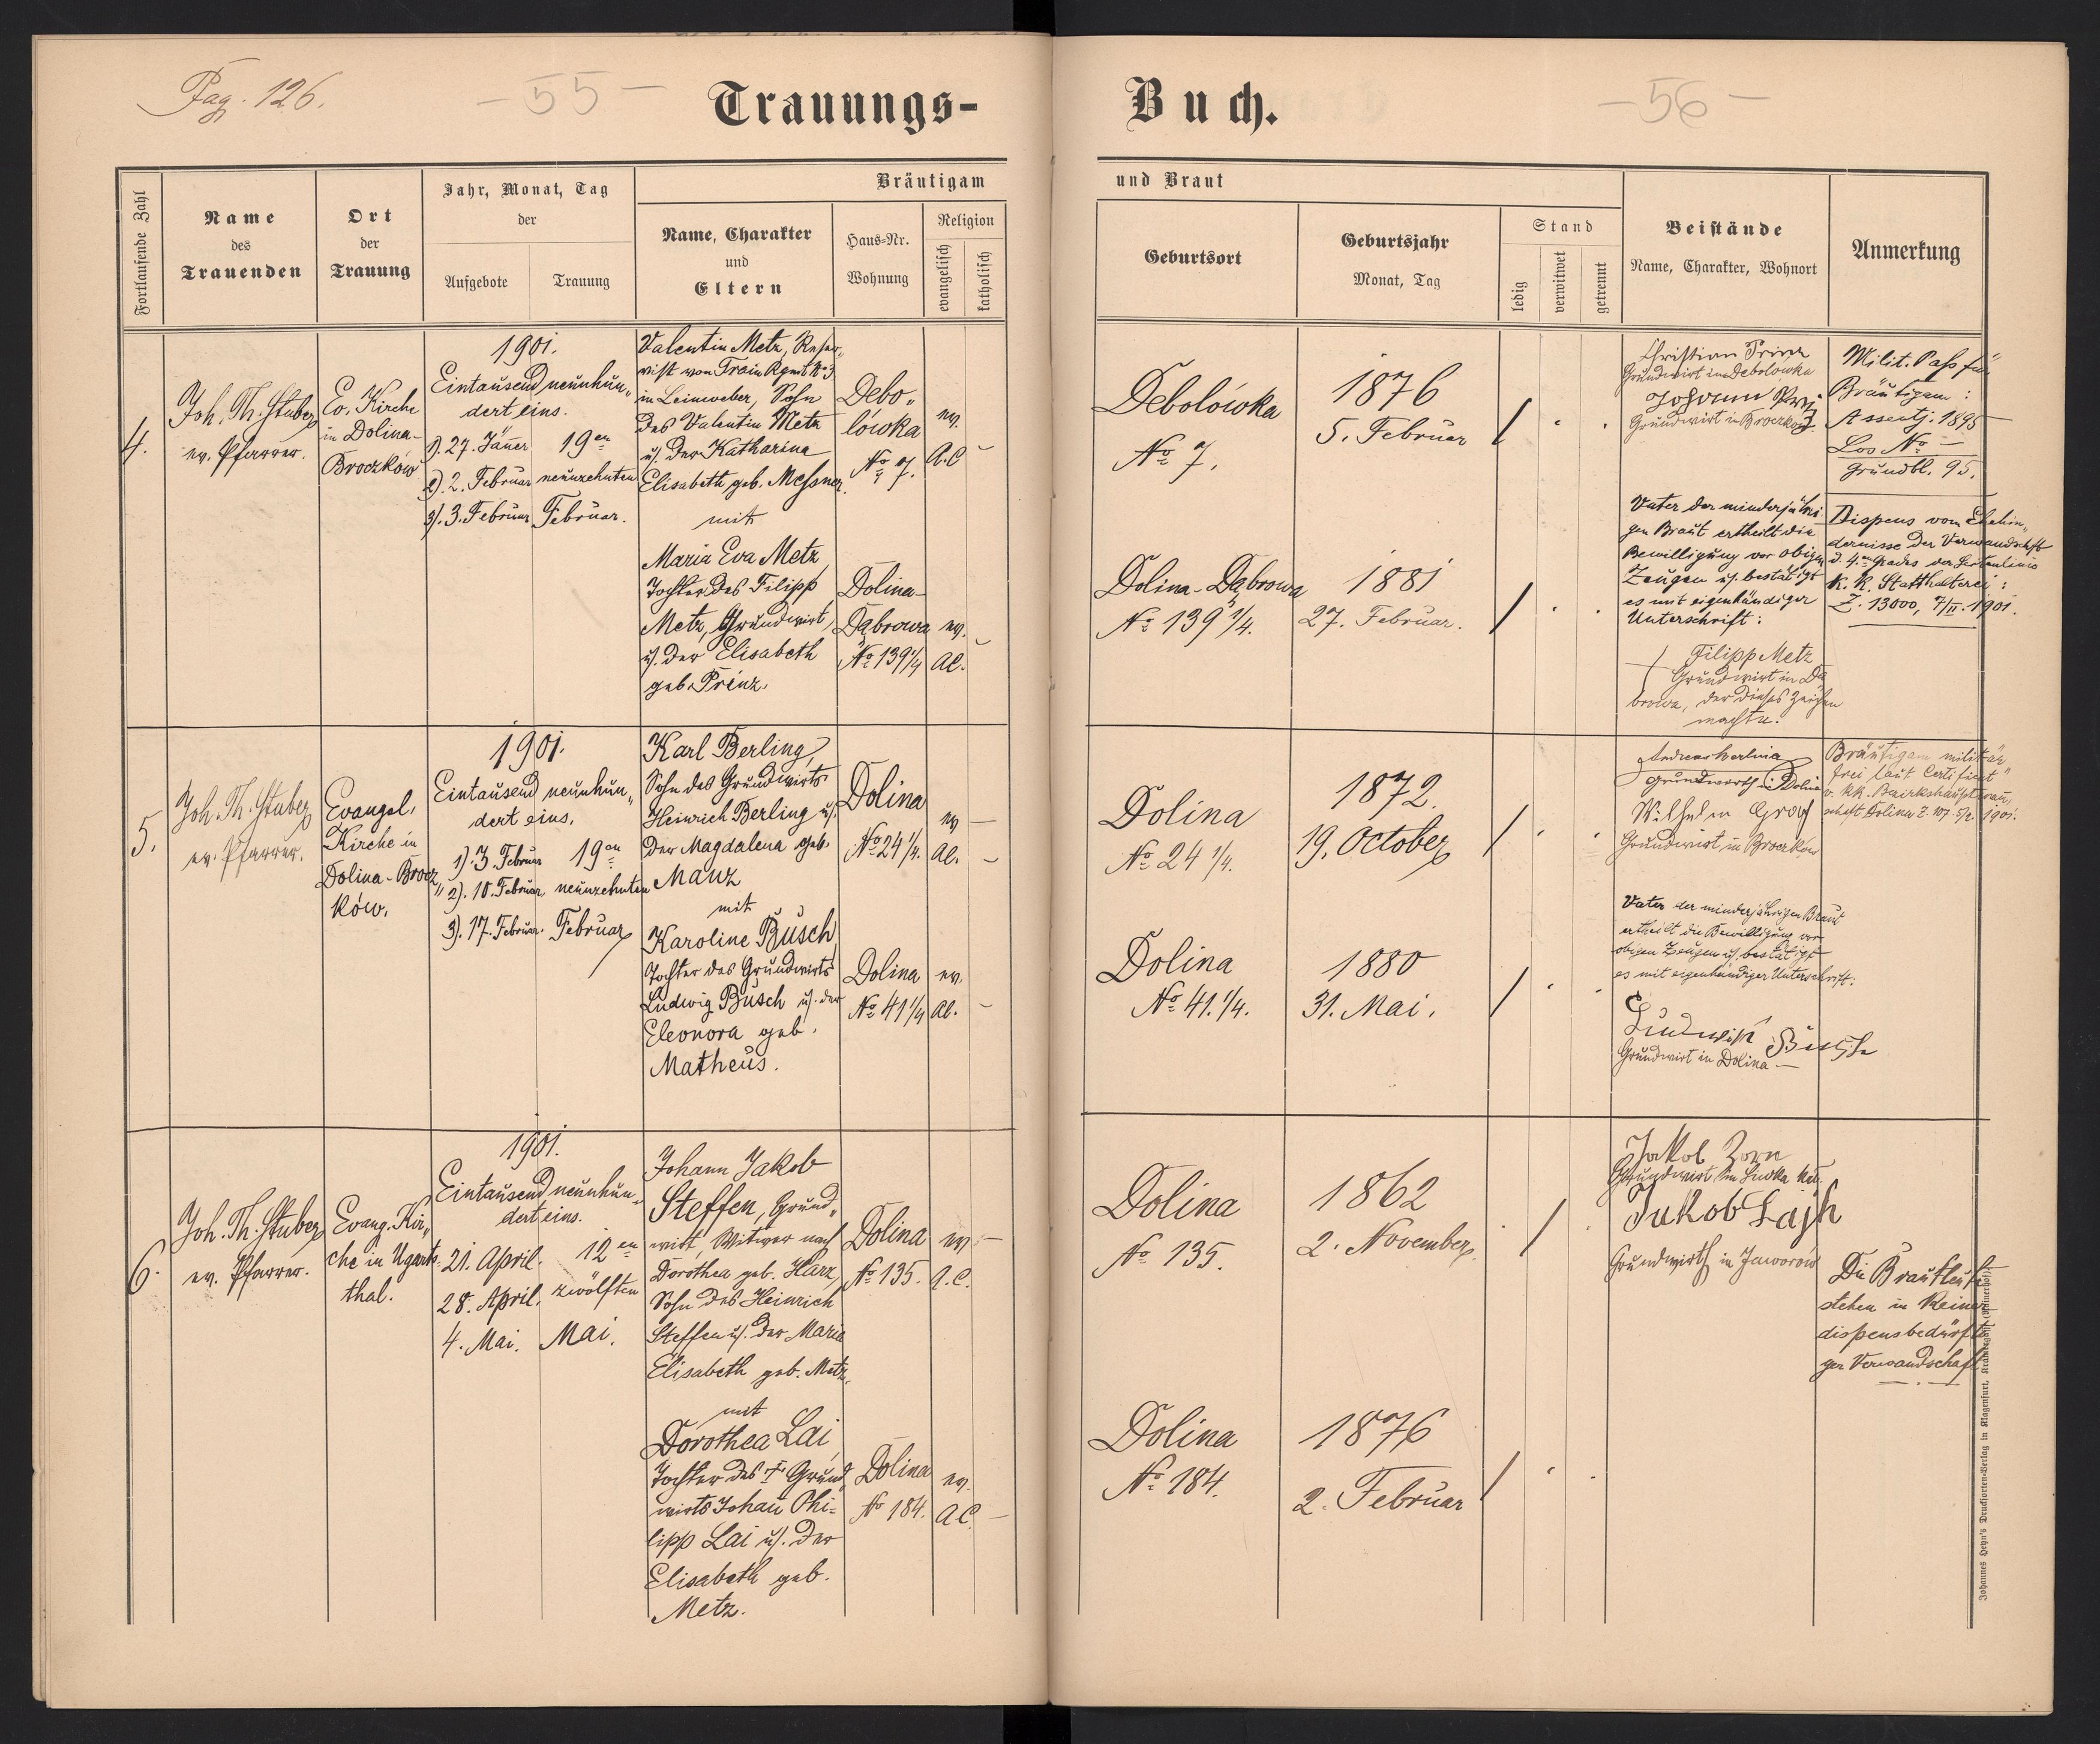 Pag. 126.
- 55 -
Trauungs-
Buch.
- 56 -
Fortlaufende Zahl
Name
des
Trauenden
Ort
der
Trauung
Jahr, Monat, Tag
der
Aufgebote
Trauung
Bräutigam
Name, Charakter
und
Eltern
Haus-Nr.
Wohnung
Religion
evangelisch
katholisch
und Braut
Geburtsort
Geburtsjahr
Monat, Tag
Stand
ledig
verwitwet
getrennt
Beistände
Name, Charakter, Wohnort
Anmerkung
4.
Joh. Th. Stuber
ev. Pfarrer.
Ev. Kirche
in Dolina-
Broczków
1901.
Eintausend neunhun„
dert eins.
1). 27. Jänner
2). 2. Februar
3). 3. Februar
19en
neunzehnten
Februar.
Valentin Metz, Reser„
vist vom Train Rgmt No 3
in Leinweber, Sohn
des Valentin Metz
u. der Katharina
Elisabeth geb. Messner.
mit
Maria Eva Metz,
Tochter des Filipp
Metz, Grundwirt,
u. der Elisabeth
geb. Prinz.
Debo„
lówka
No 7.
ev.
A.C -
Dolina-
Dąbrowa
No 139 1/4
ev.
AC. -
Debolówka
No 7.
1876
5. Februar
Dolina-Dąbrowa
No 139 1/4.
1881
27. Februar.
Christian Prinz
Grundwirt in Debolówka
Johann
Grundwirt in Broczków
Vater der minderjähri
gen Braut ertheilt die
Bewilligung vor obigen
Zeugen u. bestätigt
es mit eigenhändiger
Unterschrift:
+ Filipp Metz
Grundwirt in Dą
browa, der dieses Zeichen
machte.
Milit. Pass für
Bräutigam:
Assentj. 1895
Los No -
Grundbl. 95.
Dispens vom Ehehin„
dernisse der Verwandschft
d. 4en Grades der Seitenlinie
k. k. Statthalterei:
Z. 13000, 7/II. 1901.
5.
Joh. Th. Stuber
ev. Pfarrer.
Evangel.
Kirche in
Dolina-Brocz„
ków.
1901.
Eintausend neunhun„
dert eins.
1). 3. Februar
2). 10. Februar
3). 17. Februar.
19en
neunzehnten
Februar
Karl Berling,
Sohn des Grundwirts
Heinrich Berling u.
der Magdalena geb.
Manz
mit
Karoline Busch,
Tochter des Grundwirts
Ludwig Busch u. der
Eleonora geb.
Matheus.
Dolina
No 24 1/4.
ev -
AC. -
Dolina
No 41 1/4
ev.
AC. -
Dolina
No 24 1/4.
1872.
19. October
Dolina
No 41. 1/4.
1880
31. Mai.
Andreas
Grundwirth in Dolina
Wilhelm Grof
Grundwirt in Broczków
Vater der minderjährigen Braut
ertheilt die Bewilligung vor
obigen Zeugen u. bestätigt
es mit eigenhändiger Unterschrift:
Ludwig Busch
Grundwirt in Dolina -
Bräutigam militär„
frei laut Certificat
v. kk. Bezirkshauptman„
schaft Dolina Z. 107. 5/2. 1901.
6.
Joh. Th. Stuber
ev. Pfarrer.
Evang. Kir„
che in Ugarts-
thal.
1901.
Eintausend neunhun„
dert eins.
21. April.
28. April.
4. Mai.
12en
zwölften
Mai.
Johann Jakob
Steffen, Grund„
wirt, Witwer nach
Dorothea geb. Harz,
Sohn des Heinrich
Steffen u. der Maria
Elisabeth geb. Metz.
mit
Dorothea Lai,
Tochter des † Grund„
wirts Johann Phi-
lipp Lai u. der
Elisabeth geb.
Metz.
Dolina
No 135.
ev -
A.C.
Dolina
No 184.
ev.
AC. -
Dolina
No 135.
1862
2. November
Dolina
No 184.
1876
2. Februar
Jakob Zorn
Grundwirt in
Jakob Lajh
Grundwirth in Jaworów
Die Brautleute
stehen in keiner
dispensbedürfti
ger Verwandschaft
Johannes Heyn's Drucksorten-Verlag in Klagenfurt,